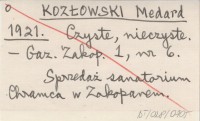 KOZŁOWSKI Medard
1921. Czyste, nieczyste.
- Gaz. Zakop. 1, nr 6.
Sprzedaż sanatorium
Chramca w Zakopanem.